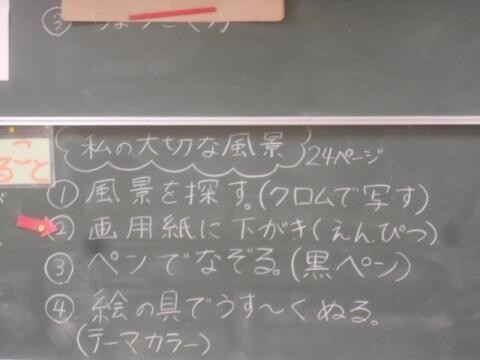 ること
私の大切な風景 24ページ
① 風景を探す。(クロムで写す)
② 画用紙に下がき(えんぴつ)
③ ペンでなぞる。(黒ペン)
④ 絵の具でうす〜くぬる。
(テーマカラー)